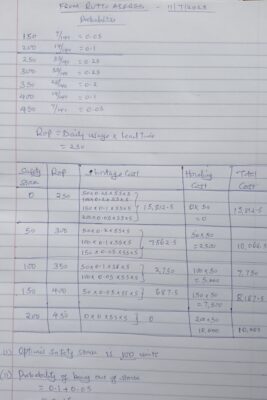 FROM RUTTO ASBEGS - 11/7/2023
Probabilities
150 7/141 = 0.05
200 14/141 = 0.1
250 = 0.25
300 = 0.25
350 = 0.2
400 14/141 = 0.1
450 7/141 = 0.05
Rop = Daily usage x Lead time
= 250
Safety Stock Rop Shortage Cost Holding Cost Total Cost
0 250 50x0.25x55x5
100x0.2x55x5
150x0.1x55x5 } 15,812.5 0x50 = 0 15,812.5
200x0.05x55x5
50 300 50x0.2x55x5
100x0.1x55x5 } 7562.5 50x50 = 2500 10,062.5
150x0.05x55x5
100 350 50x0.1x55x5
100x0.05x55x5 } 2,750 100x50 = 5,000 7,750
150 400 50x0.05x55x5 } 687.5 150x50 = 7,500 8,187.5
200 450 0x0x55x5 } 0 200x50 10,000 10,000
(i) Optimal Safety stock is 100 units
(ii) Probability of being out of stock
= 0.1 + 0.05